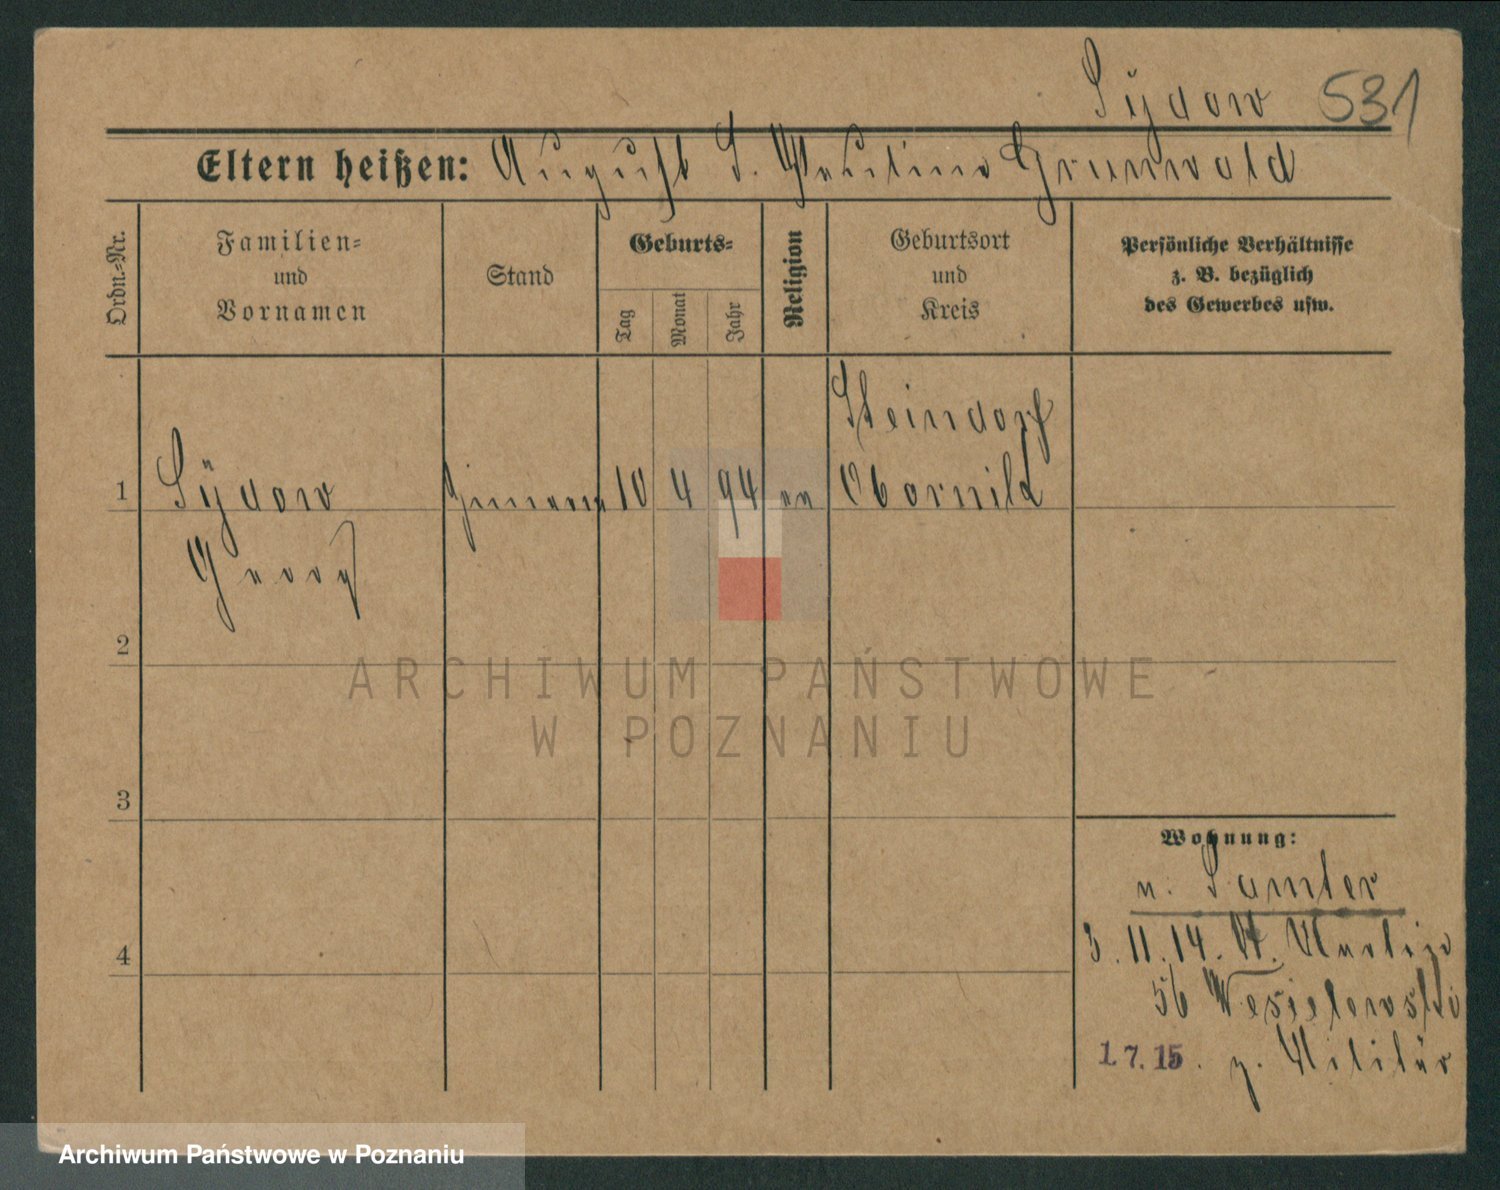 Sÿdow 531
Eltern heißen: August S. Paulina Grunwald
Ordn.-Nr.
Familien-
und
Vornamen
Stand
Geburts-
Tag
Monat
Jahr
Religion
Geburtsort
und
Kreis
Persönliche Verhältnisse
z. B. bezüglich
des Gewerbes usw.
Steindorf
1 Sÿdow 10 4 94 ev Obornik
Georg
2
3
4
Wohnung:
n. Samter
3.11.14. St. Martin
56 Wesielewski
1.7.15. z. Militär
ARCHIWUM PAŃSTWOWE
W POZNANIU
Archiwum Państwowe w Poznaniu